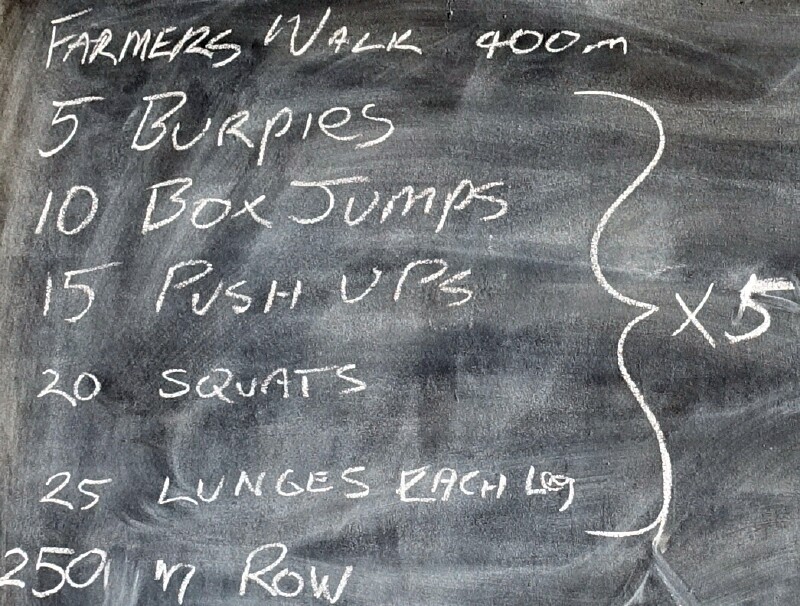 FARMERS WALK 400m
5 BURPIES
10 BOX JUMPS
15 PUSH UPS
X5
20 SQUATS
25 LUNGES EACH Leg
250 m ROW